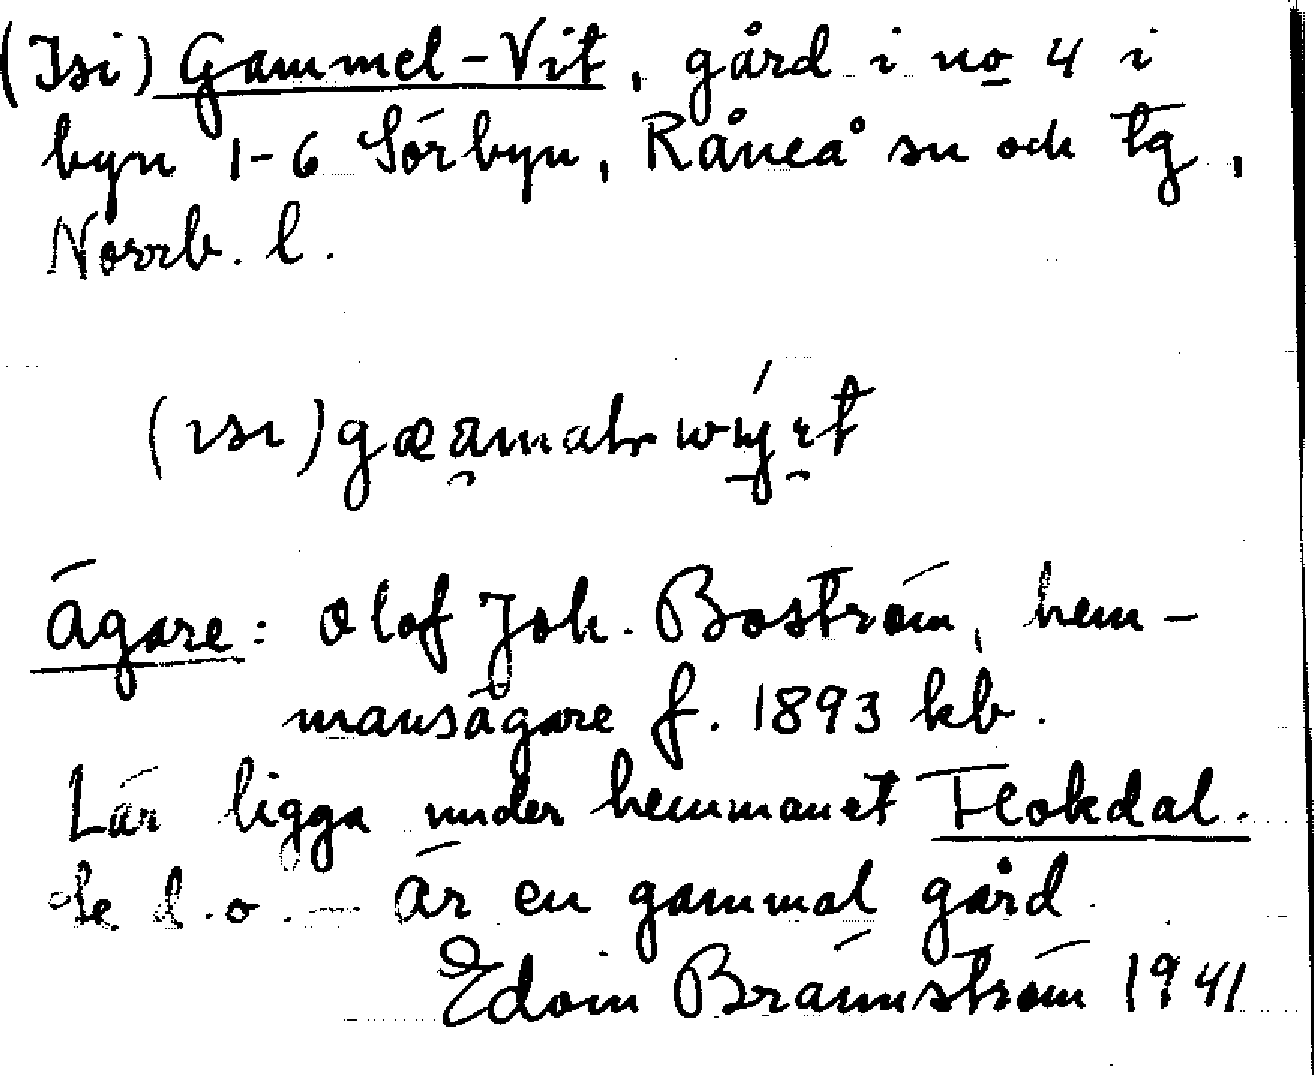 (Isi) Gammel-Vit, gård i no 4 i
byn 1-6 Sörbyn, Råneå sn och tg,
Norrb. l.
Ägare: Olof Joh. Boström, hem-
mansägare f. 1893 kb.
Lär ligga under hemmanet Flokdal.
Se d.o. - Är en gammal gård.
Edvin Brännström 1941